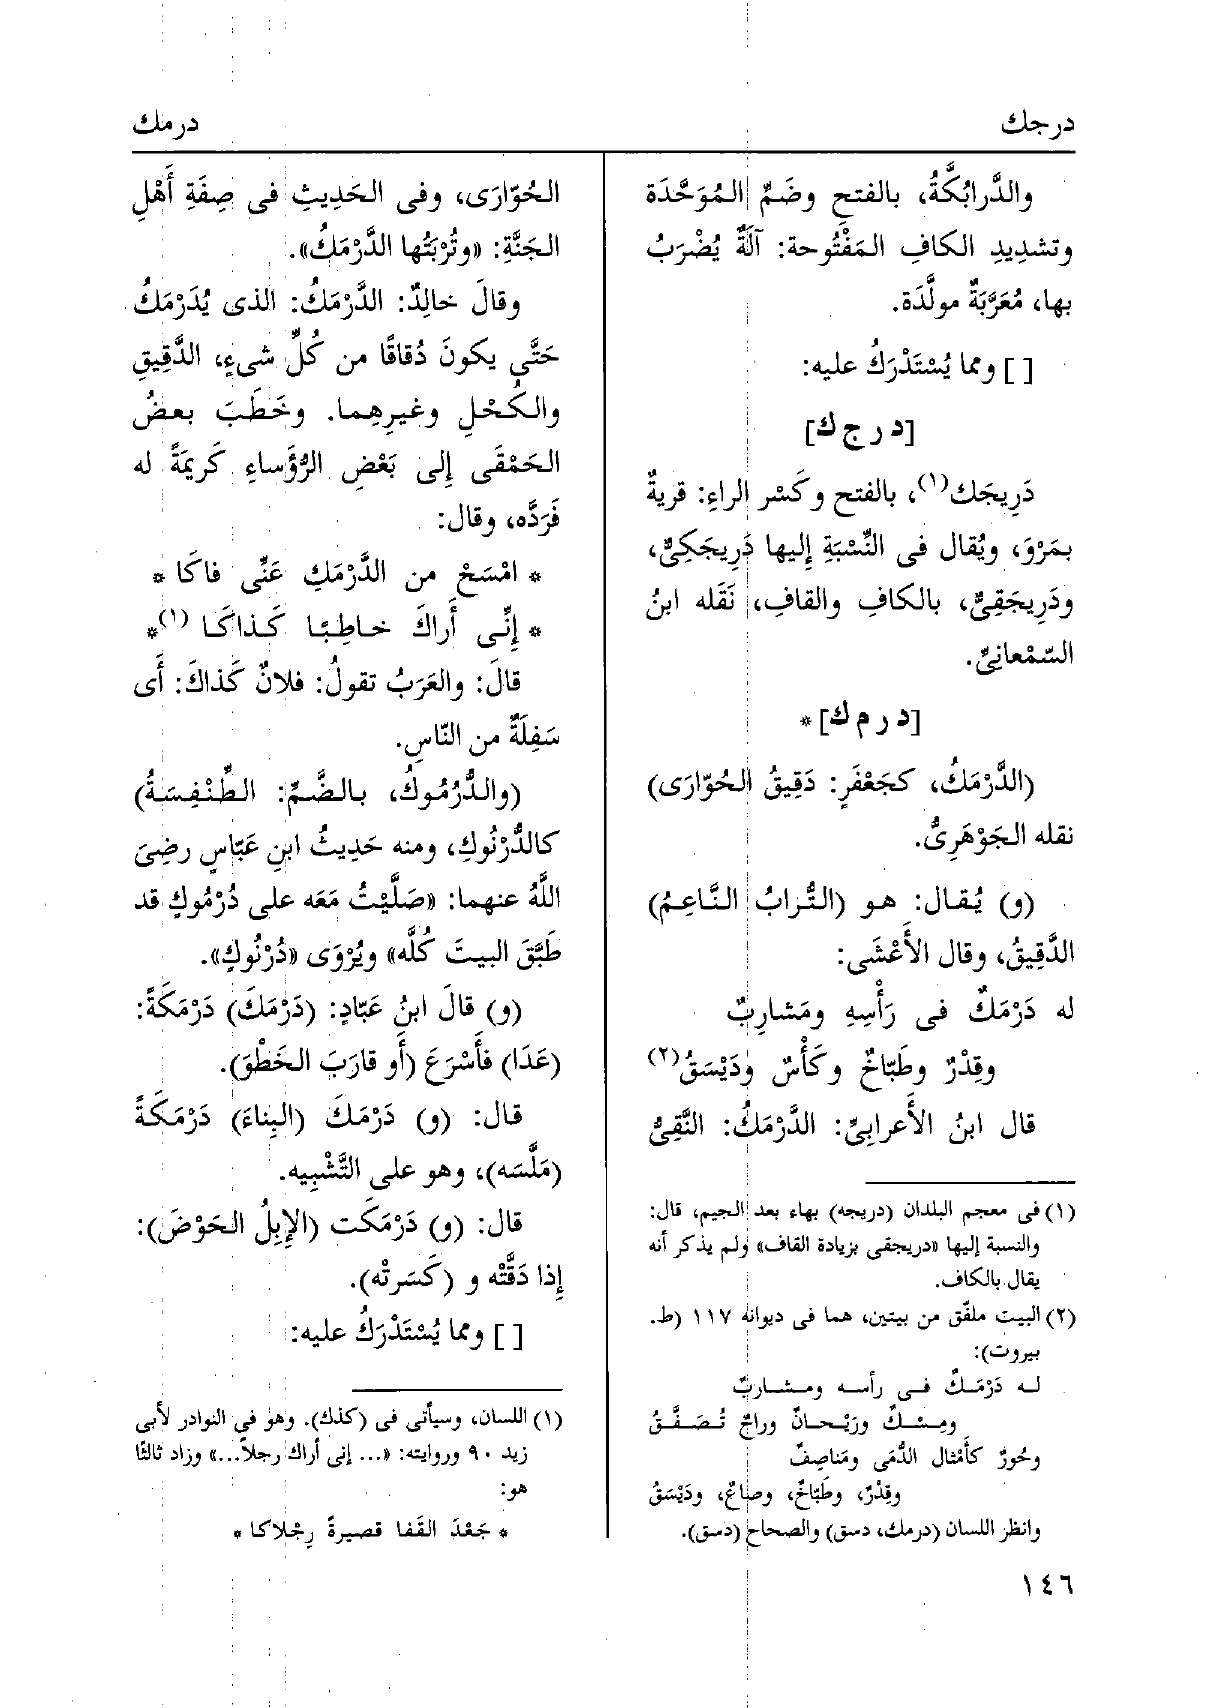 درجك
درمك
والدَّرابُكَّةُ، بالفتحِ وضَمِّ المُوَحَّدَة
وتشديدِ الكافِ المَفْتُوحة: آلَةٌ يُضْرَبُ
بها، مُعَرَّبَةٌ مولَّدَة.
[ ] ومما يُسْتَدْرَكُ عليه:
[د ر ج ك]
دَرِيجَك(١)، بالفتح وكَسْر الراءِ: قريةٌ
بمَرْوَ، ويُقال فى النِّسْبَةِ إِليها دَرِيجَكِىٌّ،
ودَرِيجَقِىٌّ، بالكافِ والقافِ، نَقَله ابنُ
السّمْعانِىِّ.
[د ر م ك] *
(الدَّرْمَكُ، كجَعْفَرٍ: دَقِيقُ الحُوّارَى)
نقله الجَوْهَرِىُّ.
(و) يُقال: هو (التُّرابُ النَّاعِمُ)
الدَّقِيقُ، وقال الأَعْشَى:
له دَرْمَكٌ فى رَأْسِهِ ومَشارِبٌ
وقِدْرٌ وطَبّاخٌ وكَأْسٌ ودَيْسَقُ(٢)
قال ابنُ الأَعرابِىِّ: الدَّرْمَكُ: النَّقِىُّ
(١) فى معجم البلدان (دريجه) بهاء بعد الجيم، قال:
والنسبة إليها «دريجقى بزيادة القاف» ولم يذكر أنه
يقال بالكاف.
(٢) البيت ملفّق من بيتين، هما فى ديوانه ١١٧ (ط.
بيروت):
له دَرْمَكٌ فى رأسه ومشاربٌ
ومِسْكٌ ورَيْحانٌ وراحٌ تُصَفَّقُ
وحُورٌ كأَمْثال الدُّمَى ومَناصِفٌ
وقِدْرٌ، وطَبّاخٌ، وصاعٌ، ودَيْسَقُ
وانظر اللسان (درمك، دسق) والصحاح (دسق).
١٤٦
الحُوّارَى، وفى الحَدِيثِ فى صِفَةِ أَهْلِ
الجَنَّةِ: «وتُرْبَتُها الدَّرْمَكُ».
وقالَ خالِدٌ: الدَّرْمَكُ: الذى يُدَرْمَكُ
حَتَّى يكونَ دُقاقًا من كُلِّ شىءٍ، الدَّقِيقِ
والكُحْلِ وغيرِهِما. وخَطَبَ بعضُ
الحَمْقَى إِلى بَعْضِ الرُّؤَساءِ كَرِيمَةً له
فَرَدَّه، وقال:
* امْسَحْ من الدَّرْمَكِ عَنِّى فاكَا *
* إِنِّى أَراكَ خاطِبًا كَذاكَا (١)*
قالَ: والعَرَبُ تقولُ: فلانٌ كَذاكَ: أَى
سَفِلَةٌ من النّاسِ.
(والدُّرْمُوكُ، بالضَّمِّ: الطِّنْفِسَةُ)
كالدُّرْنُوكِ، ومنه حَدِيثُ ابنِ عَبّاسٍ رضِىَ
اللَّهُ عنهما: «صَلَّيْتُ مَعَه على دُرْمُوكٍ قد
طَبَّقَ البيتَ كُلَّه» ويُرْوَى «دُرْنُوكٍ».
(و) قالَ ابنُ عَبّادٍ: (دَرْمَكَ) دَرْمَكَةً:
(عَدَا) فأَسْرَعَ (أَو قارَبَ الخَطْوَ).
قال: (و) دَرْمَكَ (البِناءَ) دَرْمَكَةً
(مَلَّسَه)، وهو على التَّشْبِيه.
قال: (و) دَرْمَكَت (الإِبِلُ الحَوْضَ):
إِذا دَقَّتْه و (كَسَرتْه).
[ ] ومما يُسْتَدْرَكُ عليه:
(١) اللسان، وسيأتى فى (كذك). وهو فى النوادر لأبى
زيد ٩٠ وروايته: «... إنى أراك رجلاً...» وزاد ثالثًا
هو:
* جَعْدَ القَفا قصيرةً رِجْلاكا *